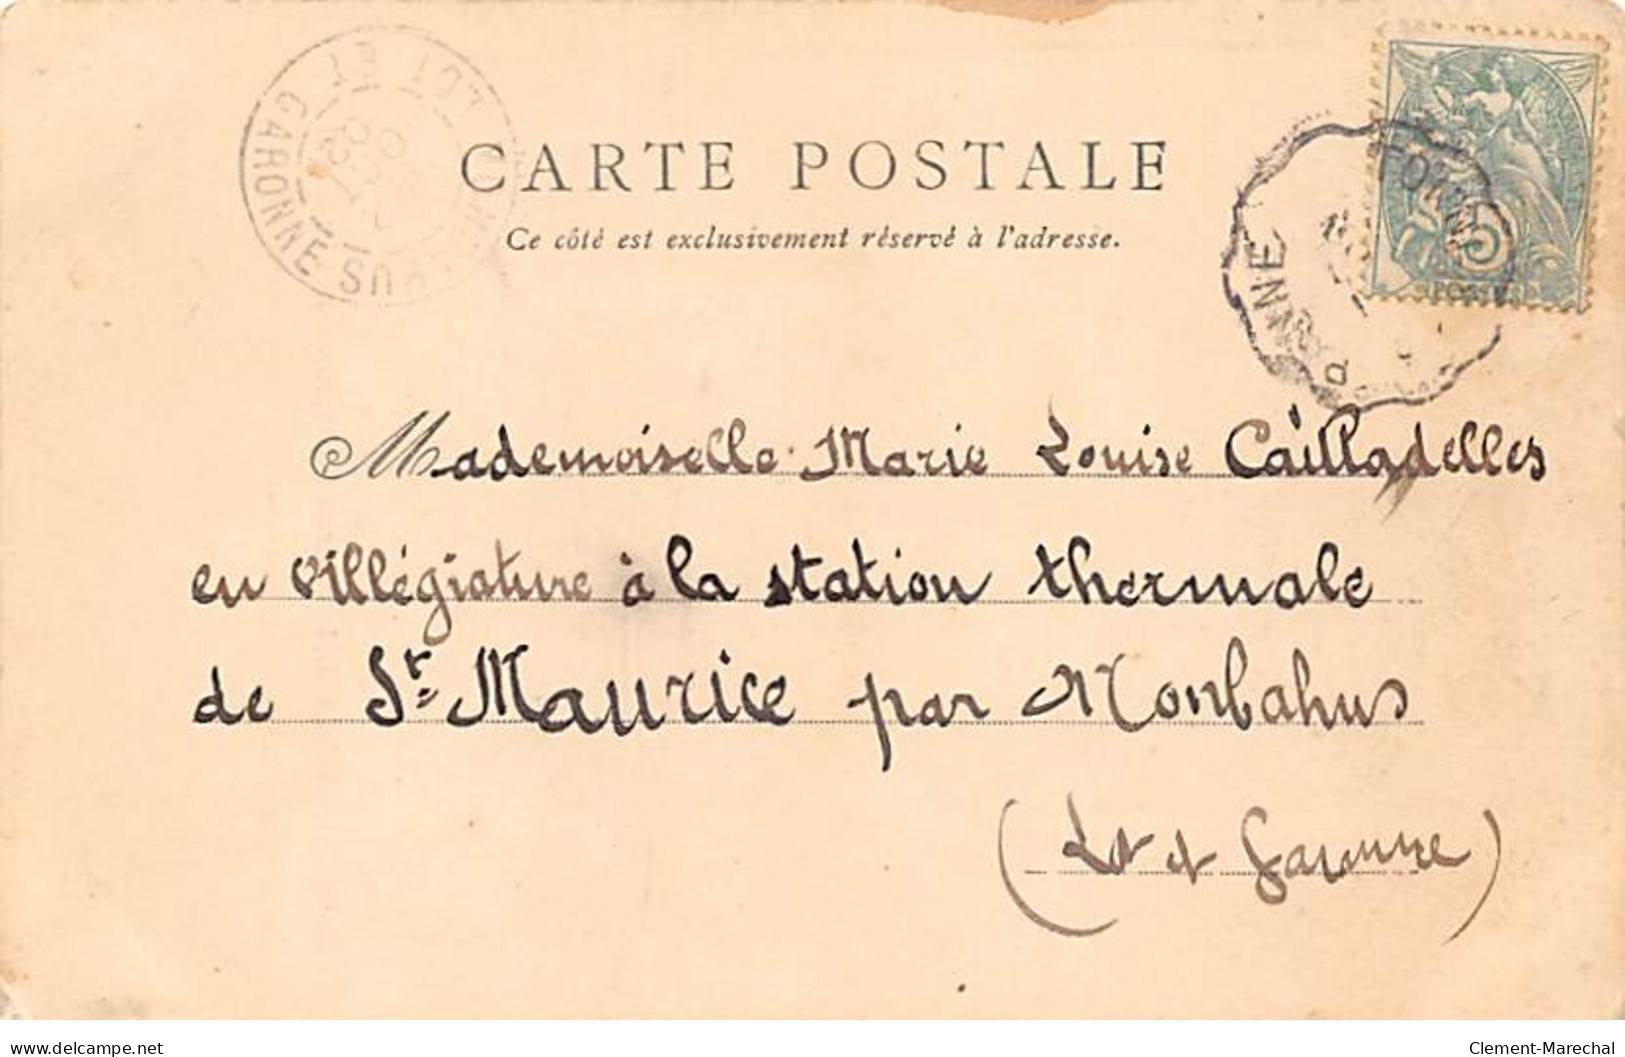 CARTE POSTALE
Ce côté est exclusivement réservé à l'adresse.
LOT ET GARONNE
Mademoiselle Marie Louise Cailladelles
en villégiature à la station thermale
de St. Maurice par Monbahus
(Lot et Garonne)
delcampe.net
Clement-Marechal